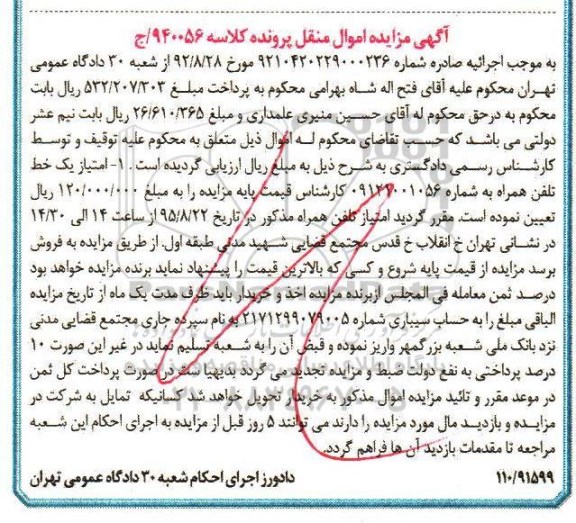 آگهی مزایده اموال منقل پرونده کلاسه ۹۴۰۰۵۶/ج
به موجب اجرائیه صادره شماره ۹۲۱۰۴۲۰۲۲۹۰۰۰۲۳۶ مورخ ۹۲/۸/۲۸ از شعبه ۳۰ دادگاه عمومی
تهران محکوم علیه آقای فتح اله شاه بهرامی محکوم به پرداخت مبلغ ۵۳۲/۲۰۷/۳۰۳ ریال بابت
محکوم به درحق محکوم له آقای حسین منیری علمداری و مبلغ ۲۶/۶۱۰/۳۶۵ ریال بابت نیم عشر
دولتی می باشد که حسب تقاضای محکوم له اموال ذیل متعلق به محکوم علیه توقیف و توسط
کارشناس رسمی دادگستری به شرح ذیل به مبلغ ریال ارزیابی گردیده است . ۱- امتیاز یک خط
تلفن همراه به شماره کارشناس قیمت پایه مزایده را به مبلغ ۱۲۰/۰۰۰/۰۰۰ ریال
تعیین نموده است. مقرر گردید امتیاز تلفن همراه مذکور در تاریخ ۹۵/۸/۲۲ از ساعت ۱۴ الی ۱۴/۳۰
در نشانی تهران خ انقلاب خ قدس مجتمع قضایی شهید مدنی طبقه اول. از طریق مزایده به فروش
برسد مزایده از قیمت پایه شروع و کسی که بالاترین قیمت را پیشنهاد نماید برنده مزایده خواهد بود
درصد ثمن معامله فی المجلس ازبرنده مزایده اخذ و خریدار باید ظرف مدت یک ماه از تاریخ مزایده
الباقی مبلغ را به حساب سیباری شماره ۲۱۷۱۲۹۹۰۷۹۰۰۵ به نام سپرده جاری مجتمع قضایی مدنی
نزد بانک ملی شعبه بزرگمهر واریز نموده و قبض آن را به شعبه تسلیم نماید در غیر این صورت ۱۰
درصد پرداختی به نفع دولت ضبط و مزایده تجدید می گردد بدیهیا ستد در صورت پرداخت کل ثمن
در موعد مقرر و تائید مزایده اموال مذکور به خریدار تحویل خواهد شد کسانیکه تمایل به شرکت در
مزایده و بازدید مال مورد مزایده را دارند می توانند ۵ روز قبل از مزایده به اجرای احکام این شعبه
مراجعه تا مقدمات بازدید آن ها فراهم گردد.
۱۱۰/۹۱۵۹۹ دادورز اجرای احکام شعبه ۳۰ دادگاه عمومی تهران